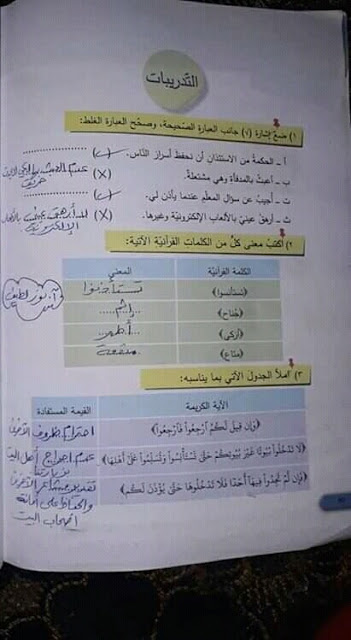 التدريبات
١) ضع إشارة (√) جانب العبارة الصحيحة، وصحّح العبارة الغلط:
أ - الحكمة من الاستئذان أن نحفظ أسرار النّاس. (✓)
ب - أعبث بالمدفأة وهي مشتعلة. (X) عدم العبث
ت - أجيبُ عن سؤال المعلّم عندما يأذن لي. (✓)
ث - أرهقُ عينيّ بالألعاب الإلكترونيّة وغيرها. (X) لا أرهق
الإلكترونية
٢) أكتبُ معنى كلٍّ من الكلمات القرآنيّة الآتية:
الكلمة القرآنيّة المعنى
﴿تستأنسوا﴾ تستأذنوا
﴿جُناح﴾ إثم
﴿أزكى﴾ أطهر
﴿متاع﴾ منفعة
٣) أملأ الجدول الآتي بما يناسبه:
الآية الكريمة القيمة المستفادة
﴿وَإِن قِيلَ لَكُمُ ٱرْجِعُوا۟ فَٱرْجِعُوا۟﴾ احترام ظروف الآخرين
﴿لَا تَدْخُلُوا۟ بُيُوتًا غَيْرَ بُيُوتِكُمْ حَتَّىٰ تَسْتَأْنِسُوا۟ وَتُسَلِّمُوا۟ عَلَىٰٓ أَهْلِهَا﴾ عدم إحراج أهل البيت
بزيارتنا
﴿فَإِن لَّمْ تَجِدُوا۟ فِيهَآ أَحَدًا فَلَا تَدْخُلُوهَا حَتَّىٰ يُؤْذَنَ لَكُمْ﴾
والحفاظ على
أصحاب البيت